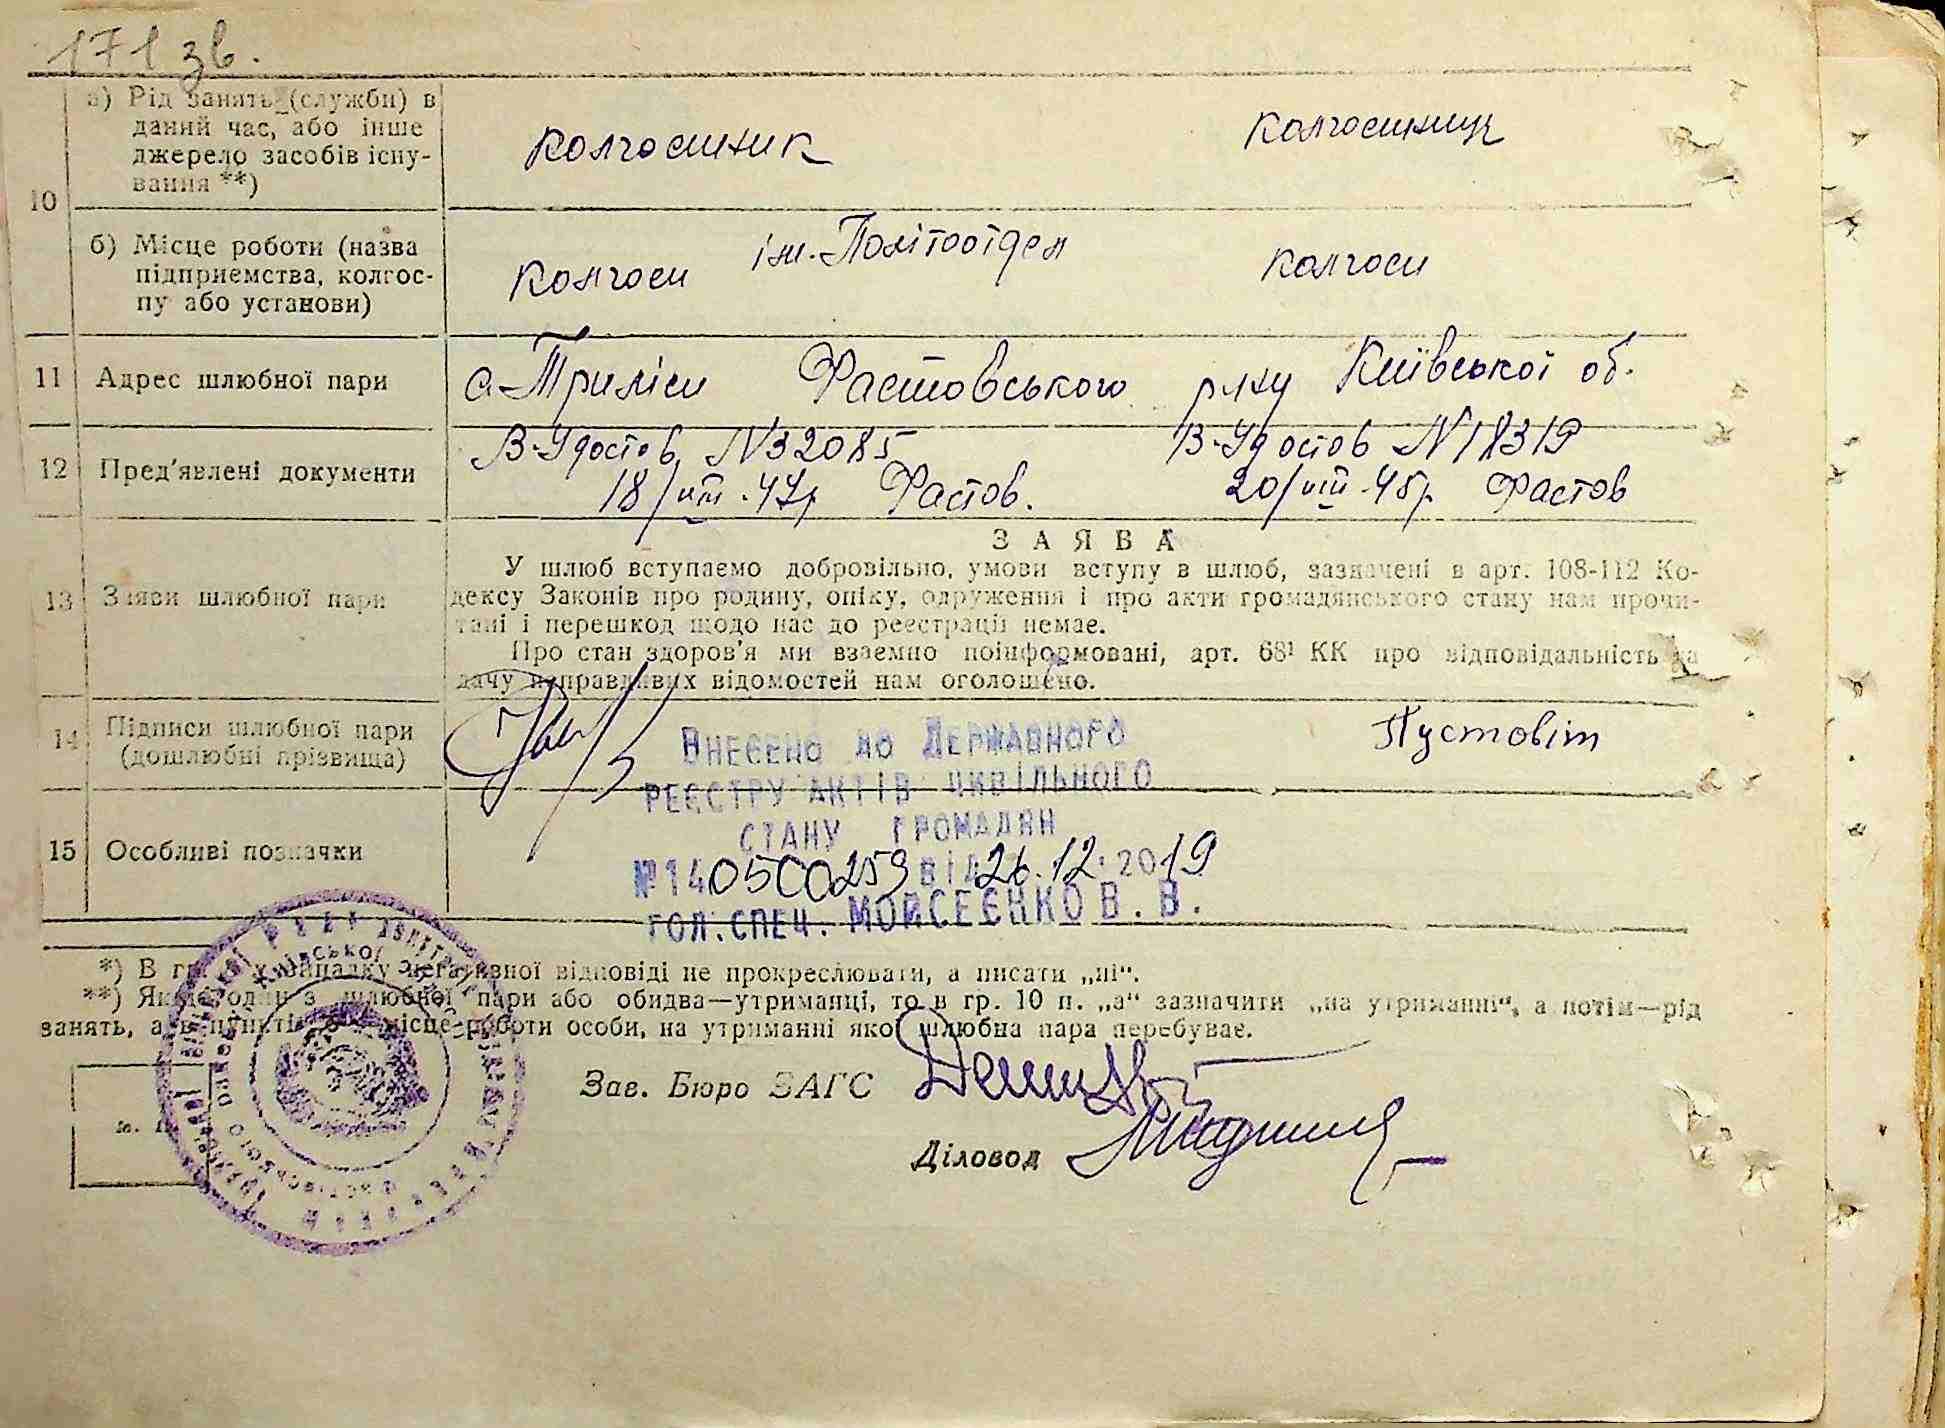 171 зв.
10
а) Рід занять (служби) в
даний час, або інше
джерело засобів існу-
вання **)
колгоспник
колгоспниця
б) Місце роботи (назва
підприємства, колгос-
пу або установи)
колгосп ім. Політотдел
колгосп
11 Адрес шлюбної пари
с. Триліси Фастовського р-ну Київської об.
12 Пред'явлені документи
В-Удостов N32085
18/VIII-47р Фастов.
В-Удостов N18319
20/VIII-45р Фастов
13 Заяви шлюбної пари
ЗАЯВА
У шлюб вступаємо добровільно, умови вступу в шлюб, зазначені в арт. 108-112 Ко-
дексу Законів про родину, опіку, одруження і про акти громадянського стану нам прочи-
тані і перешкод щодо нас до реєстрації немає.
Про стан здоров'я ми взаємно поінформовані, арт. 68¹ КК про відповідальність за
дачу неправдивих відомостей нам оголошено.
14 Підписи шлюбної пари
(дошлюбні прізвища)
Пустовіт
ВНЕСЕНО ДО ДЕРЖАВНОГО
РЕЄСТРУ АКТІВ ЦИВІЛЬНОГО
СТАНУ ГРОМАДЯН
№ 140500259 ВІД 26.12.2019
ГОЛ. СПЕЦ. МОЙСЕЄНКО В. В.
15 Особливі позначки
*) В гр. у випадку негативної відповіді не прокреслювати, а писати „ні“.
**) Якщо один з шлюбної пари або обидва—утриманці, то в гр. 10 п. „а“ зазначити „на утриманні“, а потім—рід
занять, а в пункті „б“ місце роботи особи, на утриманні якої шлюбна пара перебуває.
м. п.
Зав. Бюро ЗАГС
Діловод